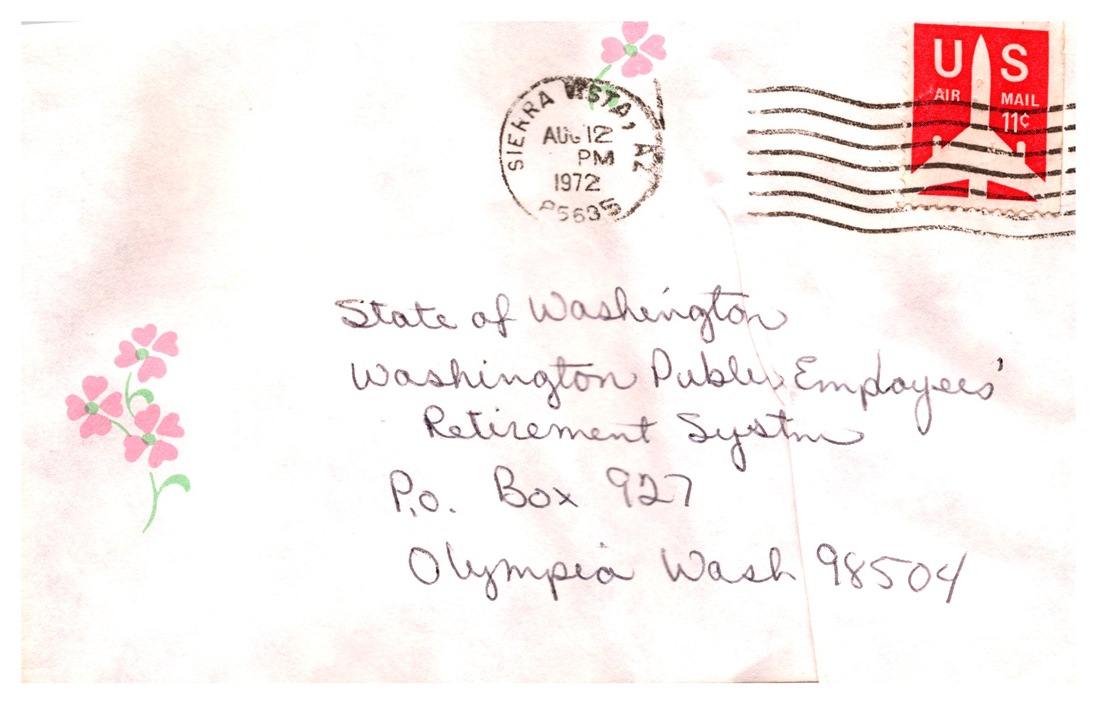 U S
AIR MAIL
11¢
SIERRA VISTA, AZ
AUG 12
PM
1972
85635
State of Washington
Washington Public Employees'
Retirement System
P.O. Box 927
Olympia Wash 98504